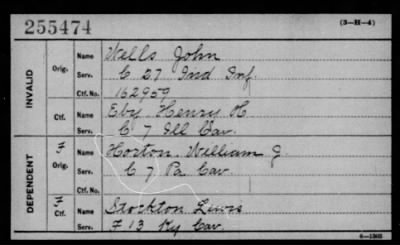 255474
(3-H-4)
INVALID
Orig.
Name Wells John
Serv. C 27 Ind Inf.
Ctf. No. 162959
Ctf.
Name Eby Henry H
Serv. C 7 Ill Cav.
DEPENDENT
F
Orig.
Name Horton William J.
Serv. C 7 Pa Cav
Ctf. No.
F
Ctf.
Name Stockton Lewis
Serv. F 13 Ky Cav.